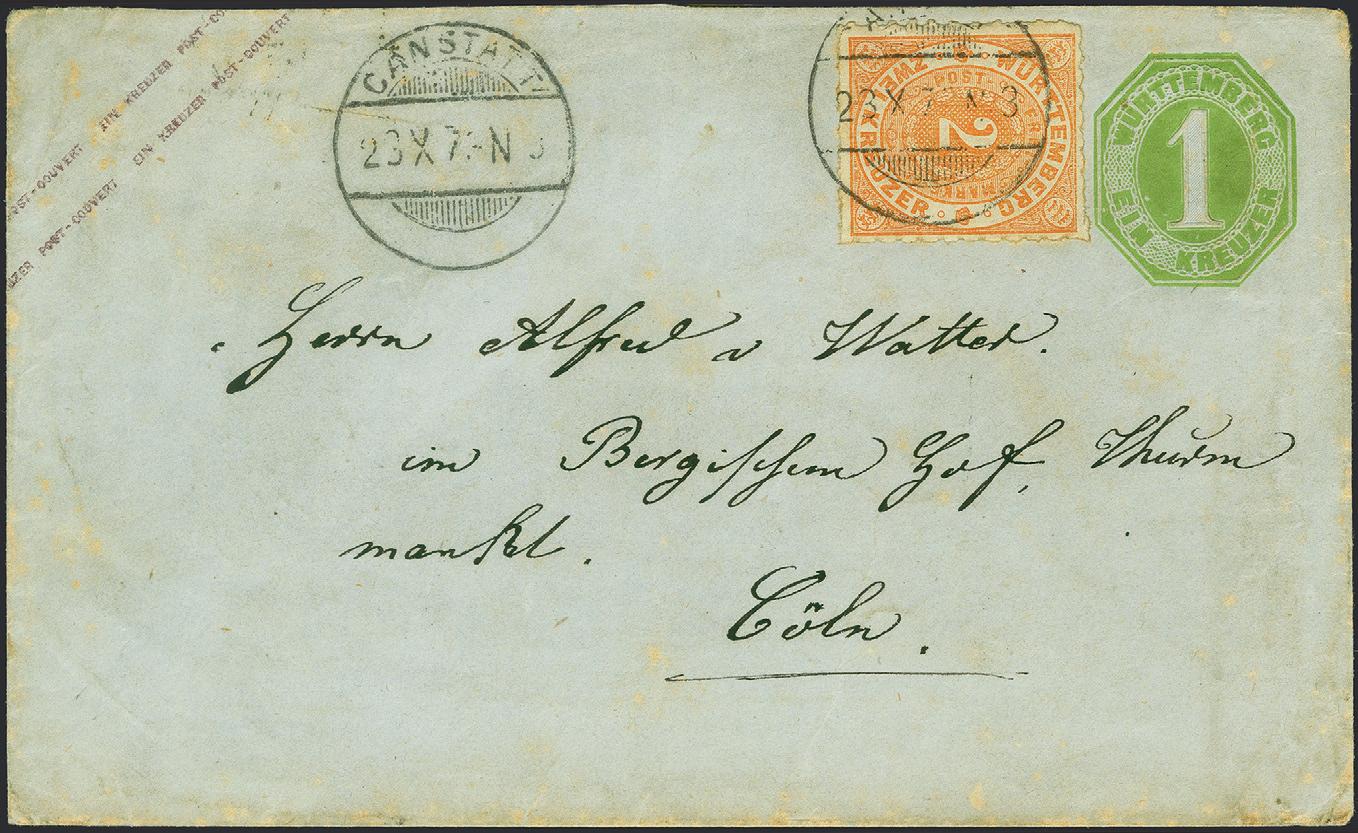 EIN KREUZER POST-CO
POST-COUVERT EIN KREUZER POST-COUVERT
UZER POST-COUVERT
CANSTATT
23 X 7 N 3
23 X 7 N 3
WÜRTTEMBERG
ZWEI KREUZER
POST
2
MARKE
WÜRTTEMBERG
1
EIN KREUZER
Herrn Alfred v Watter.
im Bergischen Hof, Thurn
markt.
Cöln.